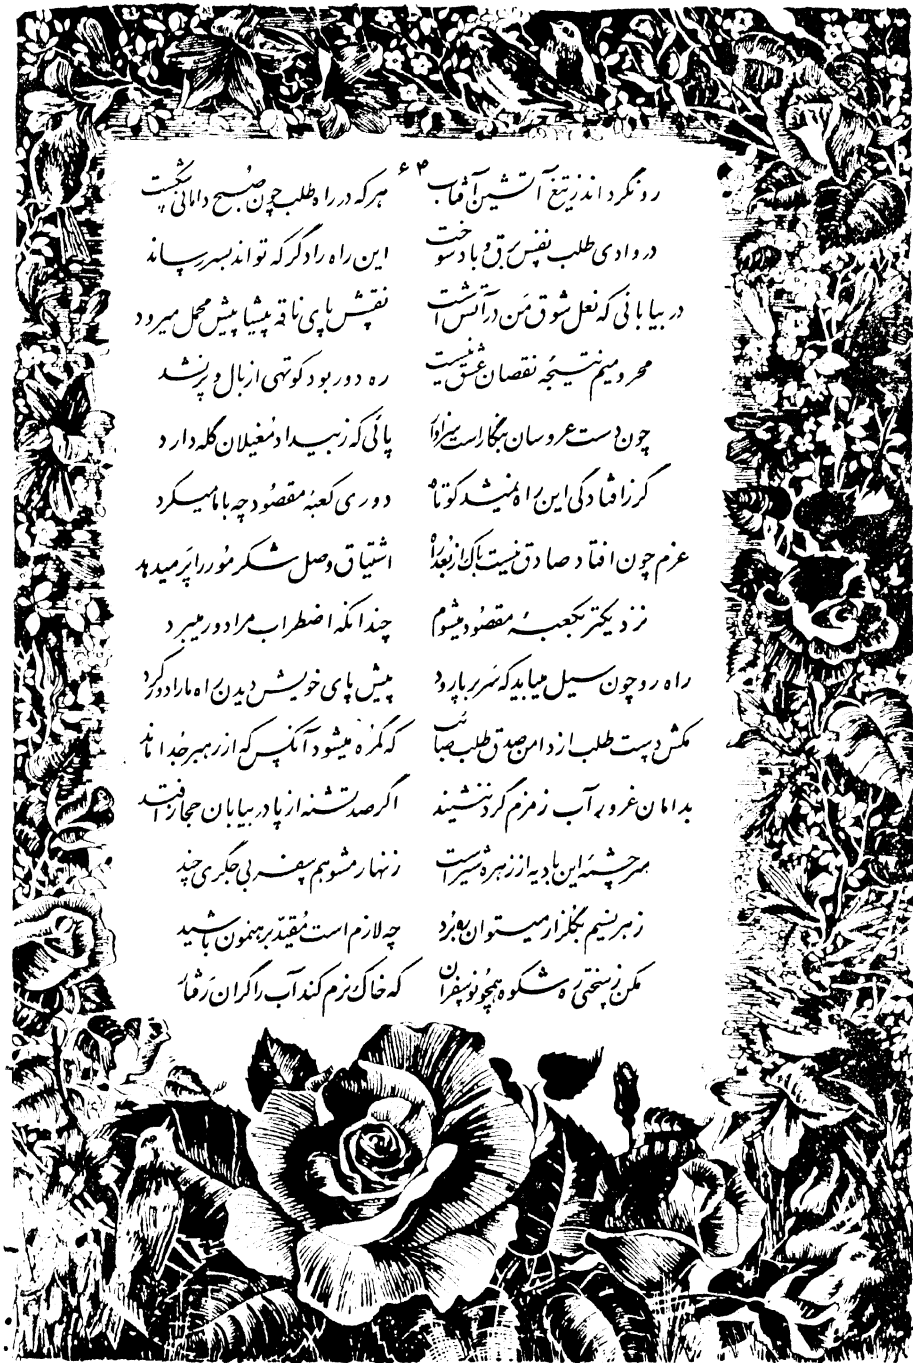 ۶۴
رو نگرداند ز تیغ آتشین آفتاب هر که در راه طلب چون صبح دامانی شکست
در وادی طلب نفس برق و باد سوخت این راه را دگر که تواند بسر رساند
در بیابانی که نعل شوق من در آتش است نقش پای ناقه پیشاپیش محمل میرود
محرومیم نتیجه نقصان عشق نیست ره دور بود کوتهی از بال و پر نشد
چون دست عروسان بنگار است سزاوار پائی که ز بیداد مغیلان گله دارد
گر ز افتادگی این راه نمیشد کوتاه دوری کعبهٔ مقصود چه با ما میکرد
عزم چون افتاد صادق نیست باک از بعد راه اشتیاق وصل شکر مور را پر میدهد
نزدیکتر بکعبهٔ مقصود میشوم چندانکه اضطراب مرا دور میبرد
راه رو چون سیل میباید که سر بر پا رود پیش پای خویش دیدن راه ما را دور کرد
مکش دست طلب از دامن صدق طلب صائب که گمره میشود آنکس که از رهبر جدا ماند
بدامان غرور آب زمزم گرد ننشیند اگر صد تشنه از پا در بیابان حجاز افتد
سرچشمهٔ این بادیه از زهرهٔ شیر است زنهار مشو همسفر بی جگری چند
ز هر نسیم بگلزار میتوان ره برد چه لازم است مقید برهنمون باشید
مکن ز سختی ره شکوه همچو نوسفران که خاک نرم کند آب را گران رفتار